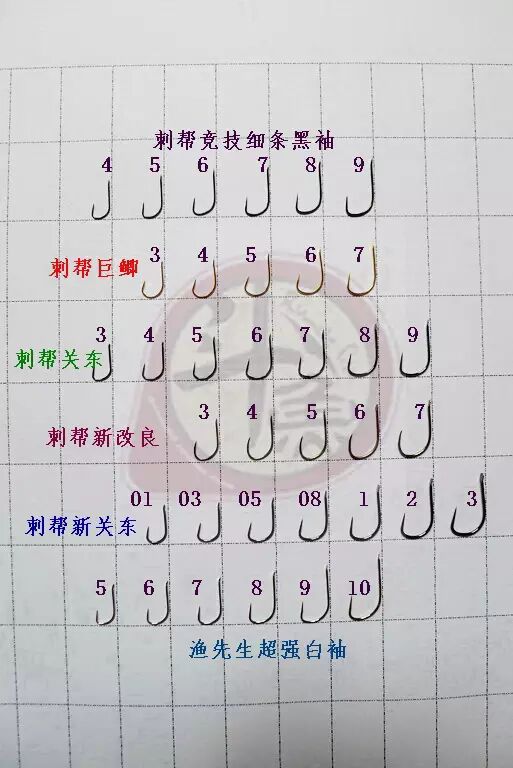 刺帮竞技细条黑袖
4 5 6 7 8 9
刺帮巨鲫
3 4 5 6 7
刺帮关东
3 4 5 6 7 8 9
刺帮新改良
3 4 5 6 7
刺帮新关东
01 03 05 08 1 2 3
5 6 7 8 9 10
渔先生超强白袖